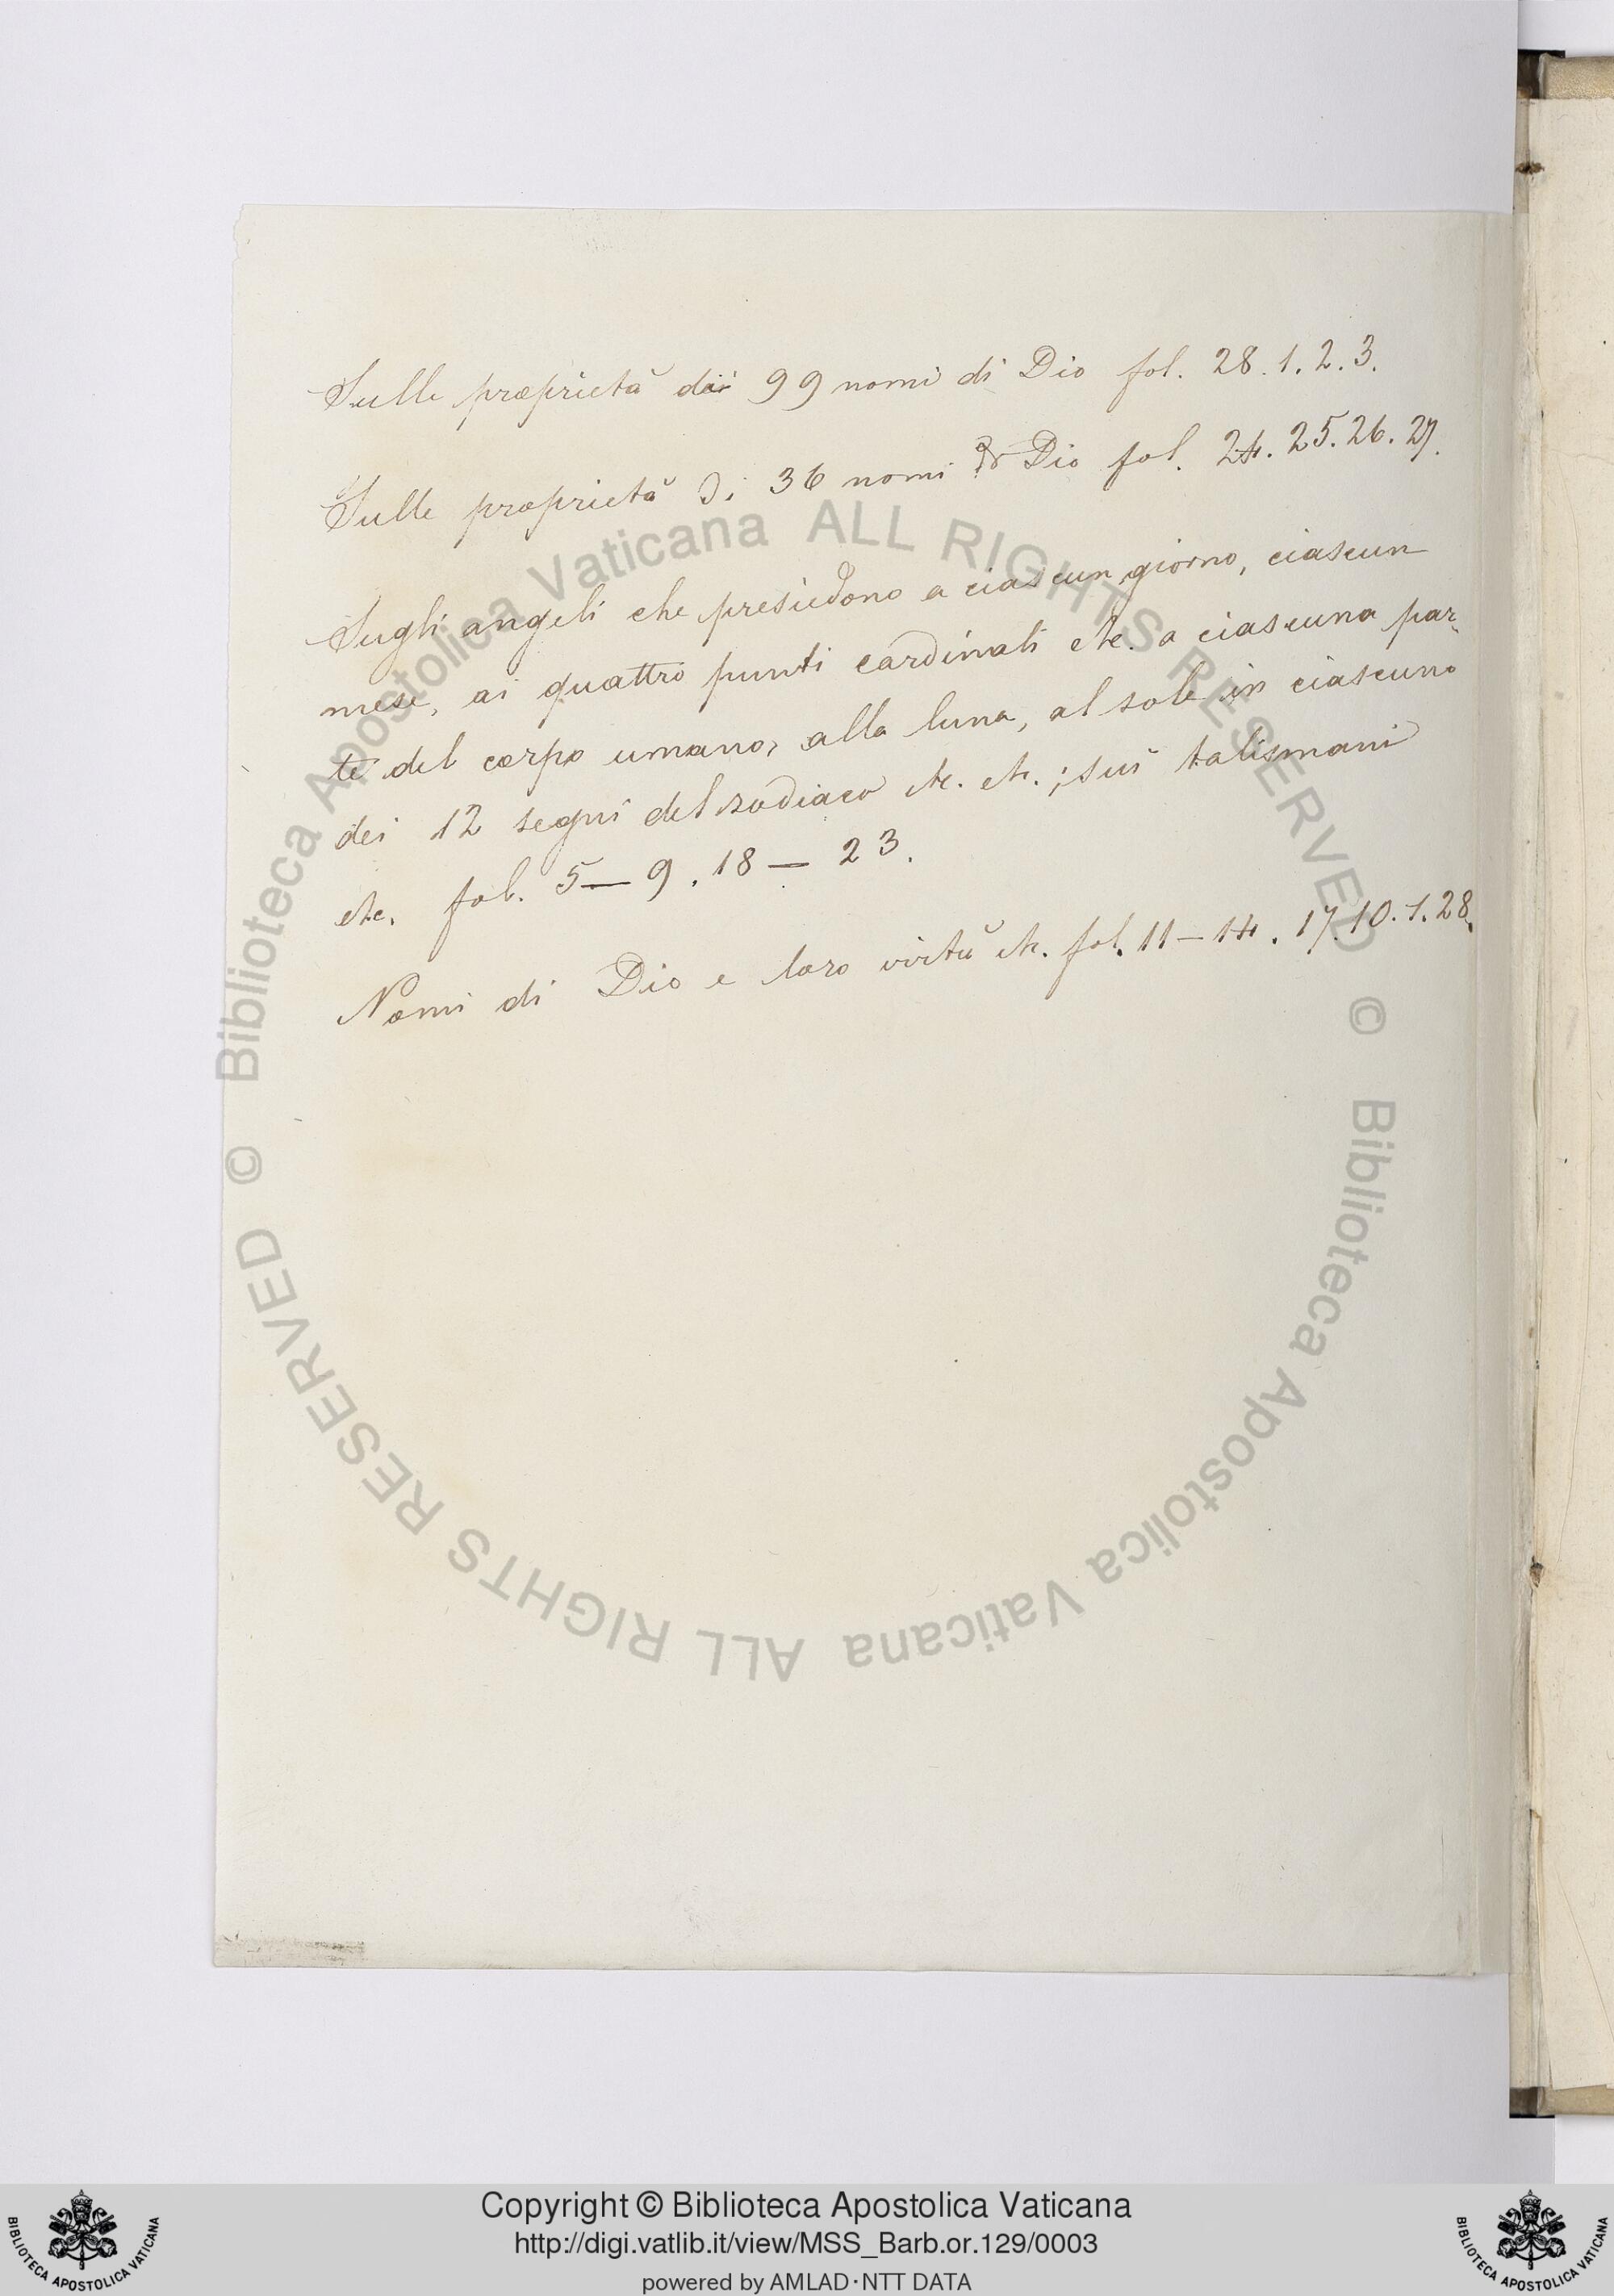 Sulle proprietà dei 99 nomi di Dio fol. 28. 1. 2. 3.
Sulle proprietà di 36 nomi di Dio fol. 24. 25. 26. 27.
Sugli angeli che presiedono a ciascun giorno, ciascun
mese, ai quattro punti cardinali etc. a ciascuna par-
te del corpo umano, alla luna, al sole in ciascuno
dei 12 segni del zodiaco etc. etc.; sui talismani
etc. fol. 5 — 9. 18 — 23.
Nomi di Dio e loro virtù etc. fol. 11 — 14. 17. 10. 1. 28.
© Biblioteca Apostolica Vaticana ALL RIGHTS RESERVED
© Biblioteca Apostolica Vaticana ALL RIGHTS RESERVED
BIBLIOTECA APOSTOLICA VATICANA
Copyright © Biblioteca Apostolica Vaticana
http://digi.vatlib.it/view/MSS_Barb.or.129/0003
powered by AMLAD·NTT DATA
BIBLIOTECA APOSTOLICA VATICANA